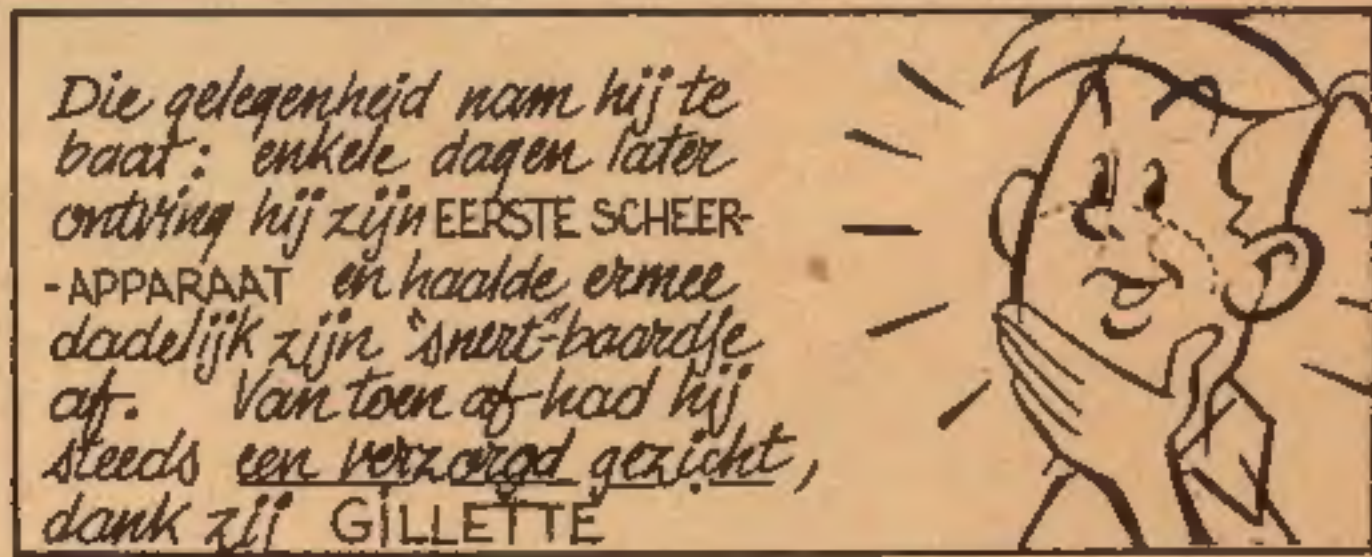 Die gelegenheid nam hij te
baat: enkele dagen later
ontving hij zijn EERSTE SCHEER-
-APPARAAT en haalde ermee
dadelijk zijn "snert"-baardje
af. Van toen af had hij
steeds een verzorgd gezicht,
dank zij GILLETTE